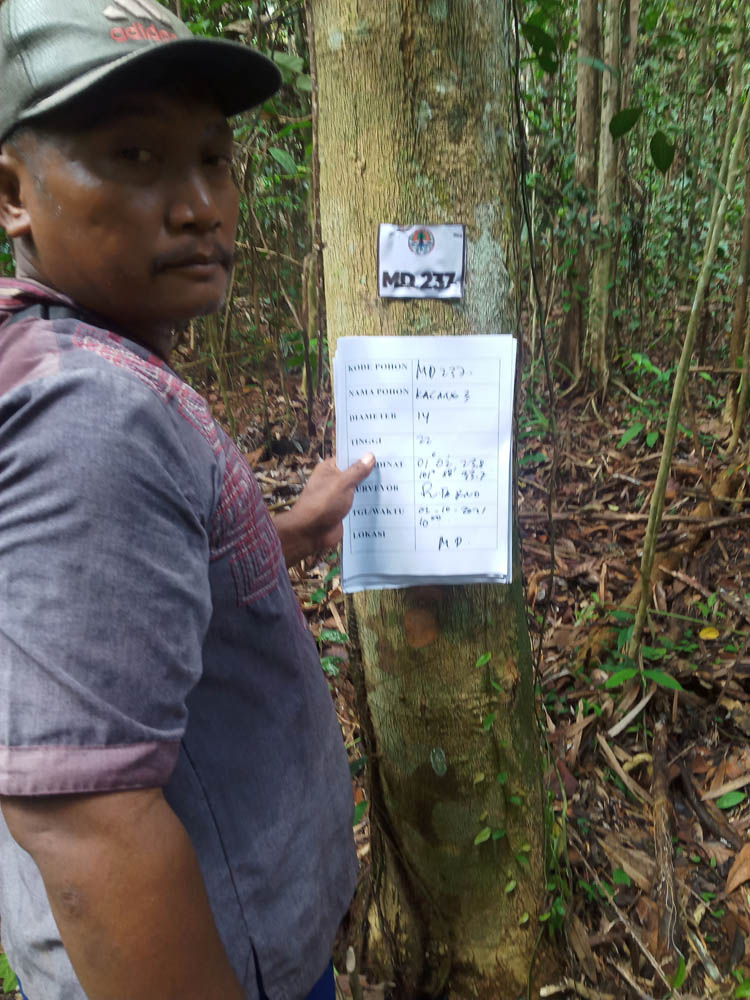 adidas
MD 237
KODE POHON MD 237.
NAMA POHON KACANG 3
DIAMETER 14
TINGGI 22
DINAT 01° 02' 23.8
SURVEYOR
TGL/WAKTU 02-10-2021
10⁰⁰
LOKASI MD.